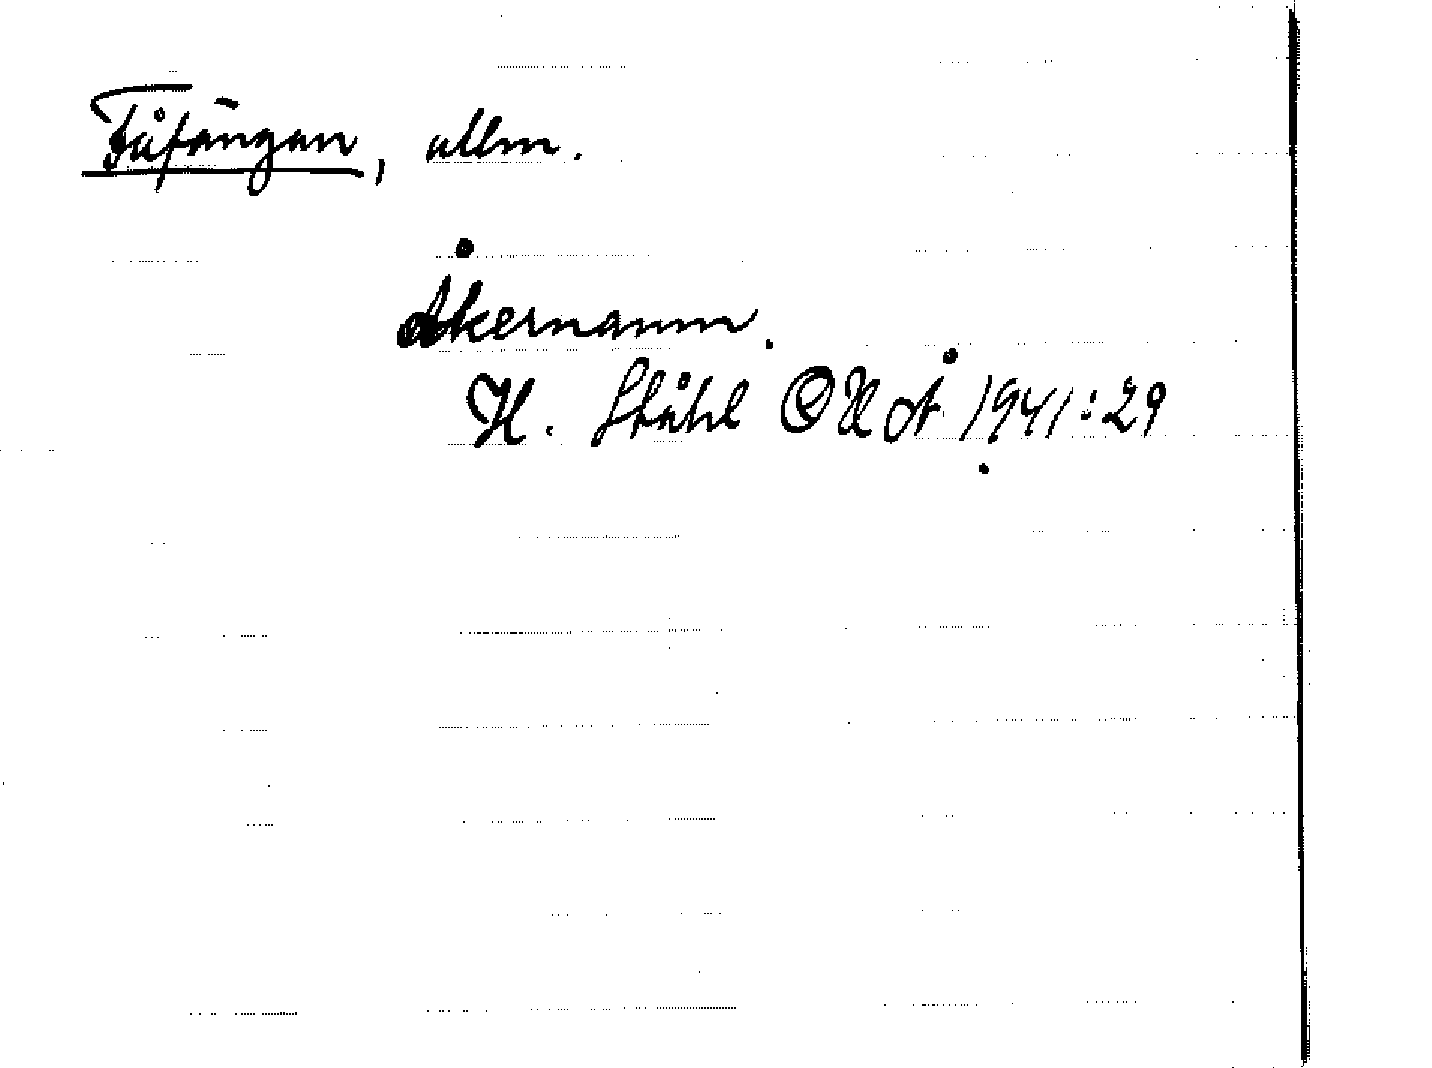 Fåfängan, allm.
Åkernamn.
H. Ståhl OHÅ 1941:29